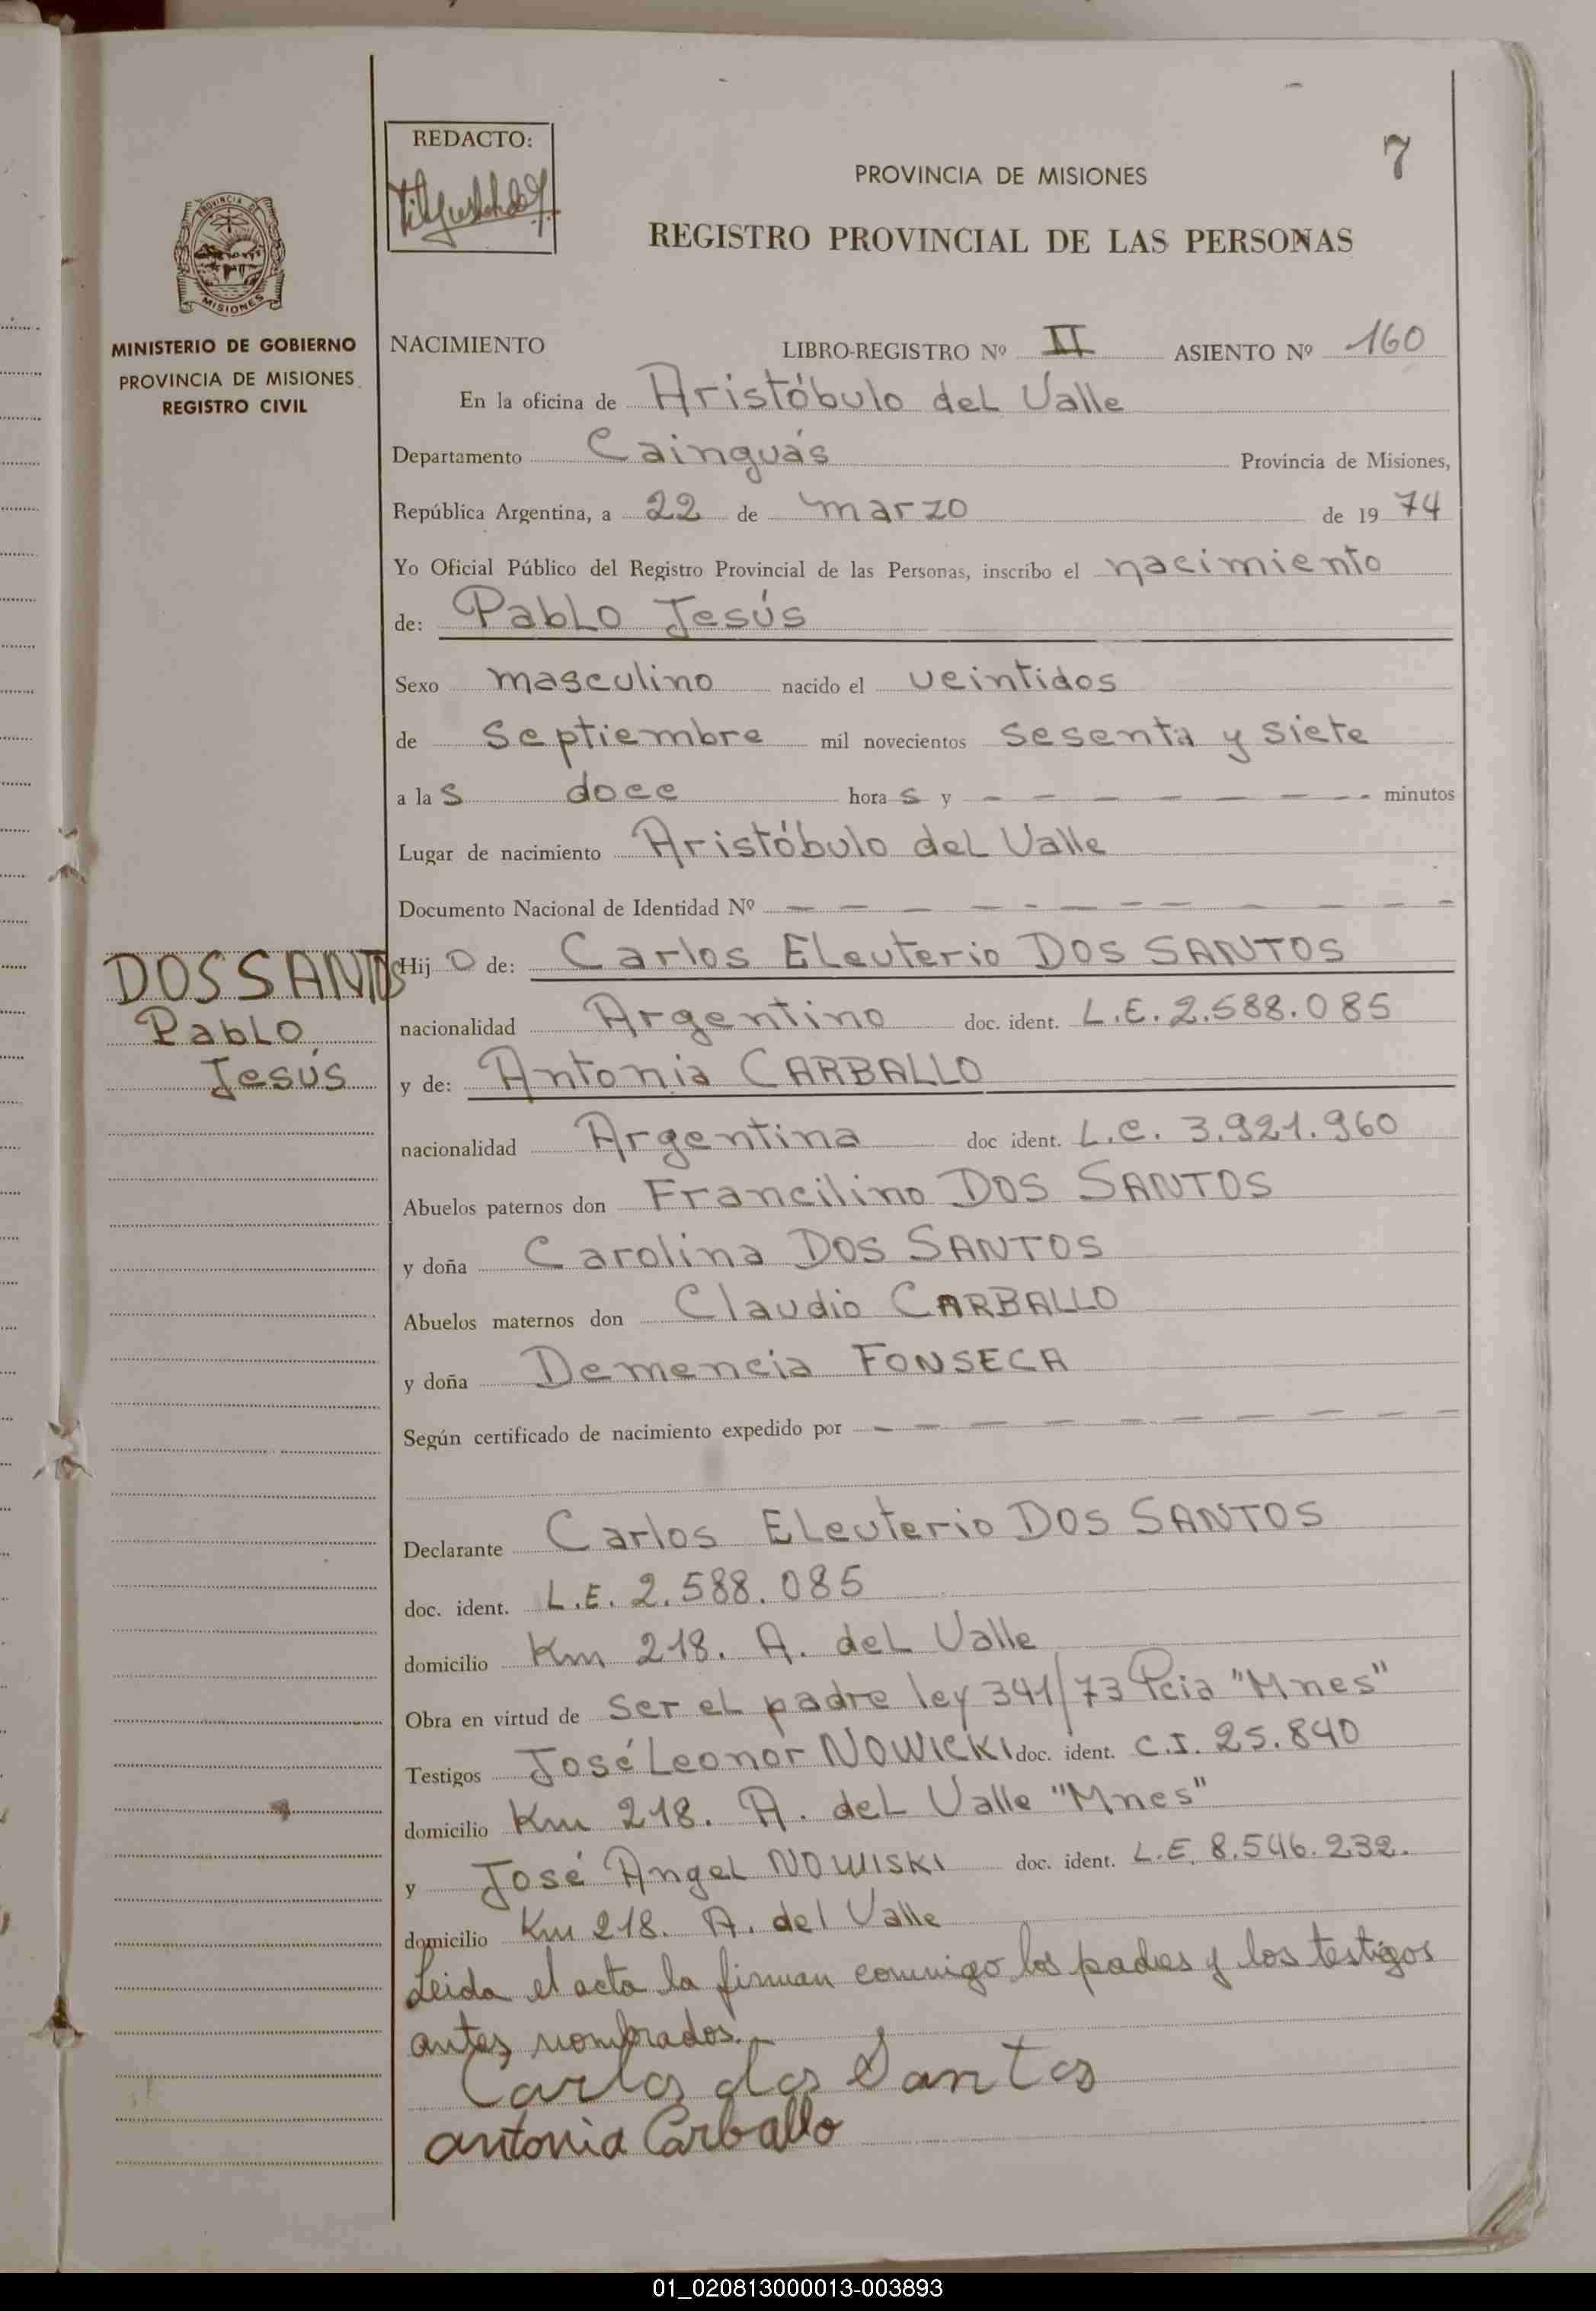 7
REDACTO:
PROVINCIA DE MISIONES
REGISTRO PROVINCIAL DE LAS PERSONAS
PROVINCIA DE
MISIONES
MINISTERIO DE GOBIERNO
PROVINCIA DE MISIONES
REGISTRO CIVIL
NACIMIENTO LIBRO-REGISTRO Nº II ASIENTO Nº 160
En la oficina de Aristóbulo del Valle
Departamento Cainguás Provincia de Misiones,
República Argentina, a 22 de marzo de 1974
Yo Oficial Público del Registro Provincial de las Personas, inscribo el nacimiento
de: Pablo Jesús
Sexo masculino nacido el veintidos
de septiembre mil novecientos sesenta y siete
a las doce horas y - - - - - - - minutos
Lugar de nacimiento Aristóbulo del Valle
Documento Nacional de Identidad Nº - - - - - - - - - - -
DOS SANTOS
Pablo
Jesús
Hijo de: Carlos Eleuterio DOS SANTOS
nacionalidad Argentino doc. ident. L.E. 2.588.085
y de: Antonia CARBALLO
nacionalidad Argentina doc ident. L.C. 3.921.960
Abuelos paternos don Francilino DOS SANTOS
y doña Carolina DOS SANTOS
Abuelos maternos don Claudio CARBALLO
y doña Demencia FONSECA
Según certificado de nacimiento expedido por - - - - - - - - -
Declarante Carlos Eleuterio DOS SANTOS
doc. ident. L.E. 2.588.085
domicilio Km 218. A. del Valle
Obra en virtud de ser el padre ley 341/73 Pcia "Mnes"
Testigos José Leonor NOWICKI doc. ident. C.I. 25.840
domicilio Km 218. A. del Valle "Mnes"
y José Angel NOWISKI doc. ident. L.E. 8.546.232.
domicilio Km 218. A. del Valle
Leida el acta la firman conmigo los padres y los testigos
antes nombrados.-
Carlos dos Santos
antonia Carballo
01_020813000013-003893